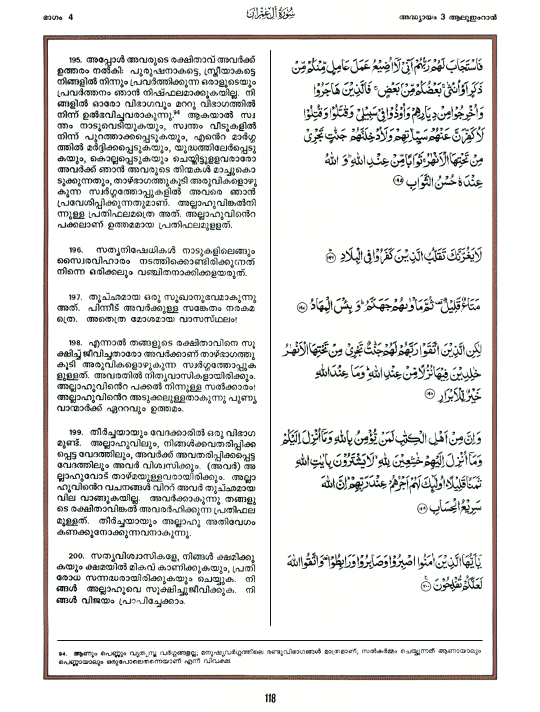 ഭാഗം 4
سُورَةُ آلِ عِمْرَان
അദ്ധ്യായം 3 ആലുഇംറാൻ
195. അപ്പോൾ അവരുടെ രക്ഷിതാവ് അവർക്ക്
ഉത്തരം നൽകി: പുരുഷനാകട്ടെ, സ്ത്രീയാകട്ടെ
നിങ്ങളിൽ നിന്നും പ്രവർത്തിക്കുന്ന ഒരാളുടെയും
പ്രവർത്തനം ഞാൻ നിഷ്ഫലമാക്കുകയില്ല. നി
ങ്ങളിൽ ഓരോ വിഭാഗവും മറ്റു വിഭാഗത്തിൽ
നിന്ന് ഉൽഭവിച്ചവരാകുന്നു.94 ആകയാൽ സ്വ
ന്തം നാടുവെടിയുകയും, സ്വന്തം വീടുകളിൽ
നിന്ന് പുറത്താക്കപ്പെടുകയും, എന്റെ മാർഗ്ഗ
ത്തിൽ മർദ്ദിക്കപ്പെടുകയും, യുദ്ധത്തിലേർപ്പെടു
കയും, കൊല്ലപ്പെടുകയും ചെയ്തിട്ടുള്ളവരാരോ
അവർക്ക് ഞാൻ അവരുടെ തിന്മകൾ മാച്ചുകൊ
ടുക്കുന്നതും, താഴ്ഭാഗത്തുകൂടി അരുവികളൊഴു
കുന്ന സ്വർഗ്ഗത്തോപ്പുകളിൽ അവരെ ഞാൻ
പ്രവേശിപ്പിക്കുന്നതുമാണ്. അല്ലാഹുവിങ്കൽനി
ന്നുള്ള പ്രതിഫലമത്രെ അത്. അല്ലാഹുവിന്റെ
പക്കലാണ് ഉത്തമമായ പ്രതിഫലമുള്ളത്.
فَاسْتَجَابَ لَهُمْ رَبُّهُمْ أَنِّي لَا أُضِيعُ عَمَلَ عَامِلٍ مِّنكُم مِّن
ذَكَرٍ أَوْ أُنثَىٰ بَعْضُكُم مِّن بَعْضٍ فَالَّذِينَ هَاجَرُوا
وَأُخْرِجُوا مِن دِيَارِهِمْ وَأُوذُوا فِي سَبِيلِي وَقَاتَلُوا وَقُتِلُوا
لَأُكَفِّرَنَّ عَنْهُمْ سَيِّئَاتِهِمْ وَلَأُدْخِلَنَّهُمْ جَنَّاتٍ تَجْرِي
مِن تَحْتِهَا الْأَنْهَارُ ثَوَابًا مِّنْ عِندِ اللَّهِ وَاللَّهُ
عِندَهُ حُسْنُ الثَّوَابِ ١٩٥
196. സത്യനിഷേധികൾ നാടുകളിലെങ്ങും
സ്വൈരവിഹാരം നടത്തിക്കൊണ്ടിരിക്കുന്നത്
നിന്നെ ഒരിക്കലും വഞ്ചിതനാക്കിക്കളയരുത്.
لَا يَغُرَّنَّكَ تَقَلُّبُ الَّذِينَ كَفَرُوا فِي الْبِلَادِ ١٩٦
197. തുച്ഛമായ ഒരു സുഖാനുഭവമാകുന്നു
അത്. പിന്നീട് അവർക്കുള്ള സങ്കേതം നരകമ
ത്രെ. അതെത്ര മോശമായ വാസസ്ഥലം!
مَتَاعٌ قَلِيلٌ ثُمَّ مَأْوَاهُمْ جَهَنَّمُ وَبِئْسَ الْمِهَادُ ١٩٧
198. എന്നാൽ തങ്ങളുടെ രക്ഷിതാവിനെ സൂ
ക്ഷിച്ച് ജീവിച്ചതാരോ അവർക്കാണ് താഴ്ഭാഗത്തു
കൂടി അരുവികളൊഴുകുന്ന സ്വർഗ്ഗത്തോപ്പുക
ളുള്ളത്. അവരതിൽ നിത്യവാസികളായിരിക്കും.
അല്ലാഹുവിന്റെ പക്കൽ നിന്നുള്ള സൽക്കാരം!
അല്ലാഹുവിന്റെ അടുക്കലുള്ളതാകുന്നു പുണ്യ
വാന്മാർക്ക് ഏറ്റവും ഉത്തമം.
لَٰكِنِ الَّذِينَ اتَّقَوْا رَبَّهُمْ لَهُمْ جَنَّاتٌ تَجْرِي مِن تَحْتِهَا الْأَنْهَارُ
خَالِدِينَ فِيهَا نُزُلًا مِّنْ عِندِ اللَّهِ وَمَا عِندَ اللَّهِ
خَيْرٌ لِّلْأَبْرَارِ ١٩٨
199. തീർച്ചയായും വേദക്കാരിൽ ഒരു വിഭാഗ
മുണ്ട്. അല്ലാഹുവിലും, നിങ്ങൾക്കവതരിപ്പിക്ക
പ്പെട്ട വേദത്തിലും, അവർക്ക് അവതരിപ്പിക്കപ്പെട്ട
വേദത്തിലും അവർ വിശ്വസിക്കും. (അവർ) അ
ല്ലാഹുവോട് താഴ്മയുള്ളവരായിരിക്കും. അല്ലാ
ഹുവിന്റെ വചനങ്ങൾ വിറ്റ് അവർ തുച്ഛമായ
വില വാങ്ങുകയില്ല. അവർക്കാകുന്നു തങ്ങളു
ടെ രക്ഷിതാവിങ്കൽ അവരർഹിക്കുന്ന പ്രതിഫല
മുള്ളത്. തീർച്ചയായും അല്ലാഹു അതിവേഗം
കണക്കുനോക്കുന്നവനാകുന്നു.
وَإِنَّ مِنْ أَهْلِ الْكِتَابِ لَمَن يُؤْمِنُ بِاللَّهِ وَمَا أُنزِلَ إِلَيْكُمْ
وَمَا أُنزِلَ إِلَيْهِمْ خَاشِعِينَ لِلَّهِ لَا يَشْتَرُونَ بِآيَاتِ اللَّهِ
ثَمَنًا قَلِيلًا أُولَٰئِكَ لَهُمْ أَجْرُهُمْ عِندَ رَبِّهِمْ إِنَّ اللَّهَ
سَرِيعُ الْحِسَابِ ١٩٩
200. സത്യവിശ്വാസികളേ, നിങ്ങൾ ക്ഷമിക്കു
കയും ക്ഷമയിൽ മികവ് കാണിക്കുകയും, പ്രതി
രോധ സന്നദ്ധരായിരിക്കുകയും ചെയ്യുക. നി
ങ്ങൾ അല്ലാഹുവെ സൂക്ഷിച്ചുജീവിക്കുക. നി
ങ്ങൾ വിജയം പ്രാപിച്ചേക്കാം.
يَا أَيُّهَا الَّذِينَ آمَنُوا اصْبِرُوا وَصَابِرُوا وَرَابِطُوا وَاتَّقُوا اللَّهَ
لَعَلَّكُمْ تُفْلِحُونَ ٢٠٠
94. ആണും പെണ്ണും വ്യത്യസ്ത വർഗ്ഗങ്ങളല്ല; മനുഷ്യവർഗ്ഗത്തിലെ രണ്ടുവിഭാഗങ്ങൾ മാത്രമാണ്; സൽകർമ്മം ചെയ്യുന്നത് ആണായാലും
പെണ്ണായാലും ഒരുപോലെതന്നെയാണ് എന്ന് വിവക്ഷ.
118